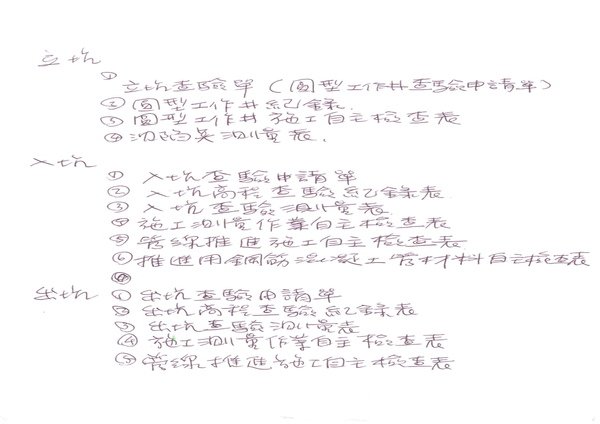 立坑
① 立坑查驗單（圓型工作井查驗申請單）
② 圓型工作井紀錄
③ 圓型工作井施工自主檢查表
④ 沉陷莫測量表.
入坑
① 入坑查驗申請單
② 入坑高程查驗紀錄表
③ 入坑查驗測量表
④ 施工測量作業自主檢查表
⑤ 管線推進施工自主檢查表
⑥ 推進用鋼筋混凝土管材料自主檢查表
出坑 ① 出坑查驗申請單
② 出坑高程查驗紀錄表
③ 出坑查驗測量表
④ 施工測量作業自主檢查表
⑤ 管線推進施工自主檢查表